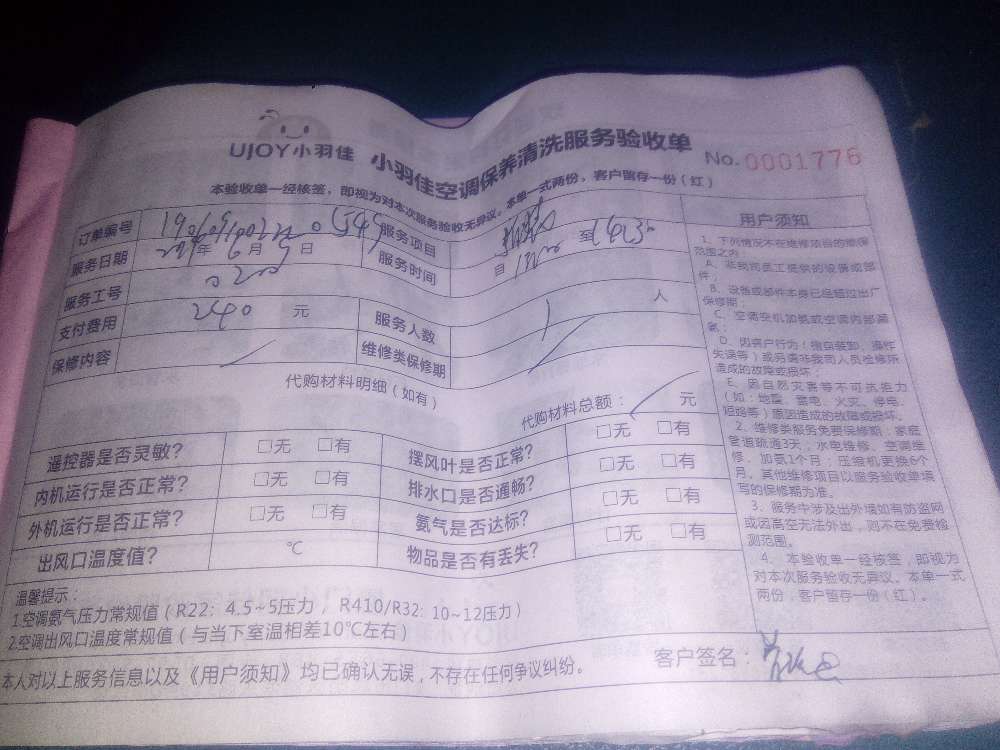 UJOY小羽佳 小羽佳空调保养清洗服务验收单 No.0001776
本验收单一经核签，即视为对本次服务验收无异议。本单一式两份，客户留存一份（红）
订单编号 服务项目
服务日期 年 月 日 服务时间 自 至
服务工号 0200
支付费用 240 元 服务人数 1 人
保修内容 维修类保修期
代购材料明细（如有）
代购材料总额： 元
遥控器是否灵敏? □无 □有 摆风叶是否正常? □无 □有
内机运行是否正常? □无 □有 排水口是否通畅? □无 □有
外机运行是否正常? □无 □有 氨气是否达标? □无 □有
出风口温度值? ℃ 物品是否有丢失? □无 □有
温馨提示：
1.空调氨气压力常规值（R22: 4.5~5压力，R410/R32: 10~12压力）
2.空调出风口温度常规值（与当下室温相差10℃左右）
本人对以上服务信息以及《用户须知》均已确认无误，不存在任何争议纠纷。
客户签名：
用户须知
1、下列情况不在维修项目的维保
范围之内：
A、非我司员工提供的设备或部
件；
B、设备或部件本身已经超过出厂
保修期；
C、空调安机加氨或空调内部漏
氨；
D、因客户行为（擅自装卸、操作
失误等）或另请非我司人员检修所
造成的故障或损坏；
E、因自然灾害等不可抗拒力
（如：地震、雷电、火灾、停电、
短路等）原因造成的故障或损坏。
2、维修类服务免费保修期：家庭
管道疏通3天；水电维修、空调维
修、加氨1个月；压缩机更换6个
月，其他维修项目以服务验收单填
写的保修期为准。
3、服务中涉及出外墙如有防盗网
或因高空无法外出，则不在免费检
测范围。
4、本验收单一经核签，即视为
对本次服务验收无异议。本单一式
两份，客户留存一份（红）。